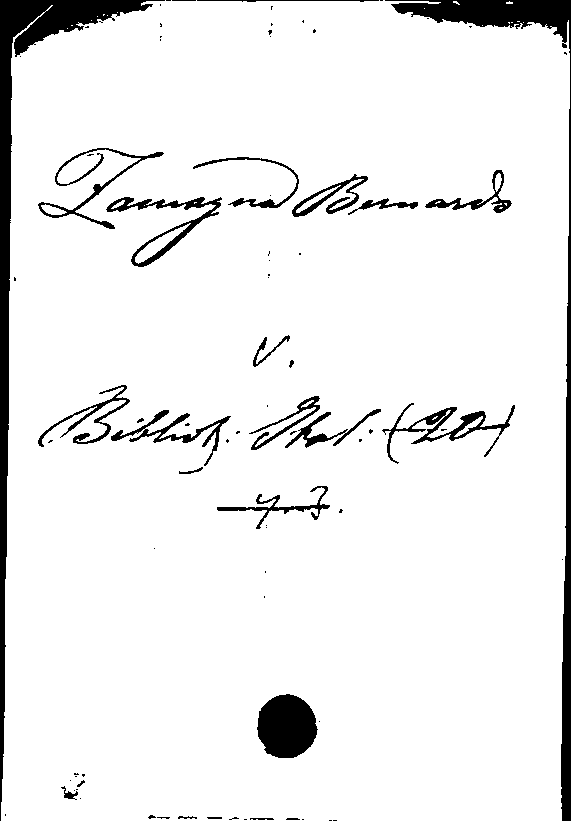 Zamagna Bernardo
V.
Biblioth. Ital. (20)
4. 3.